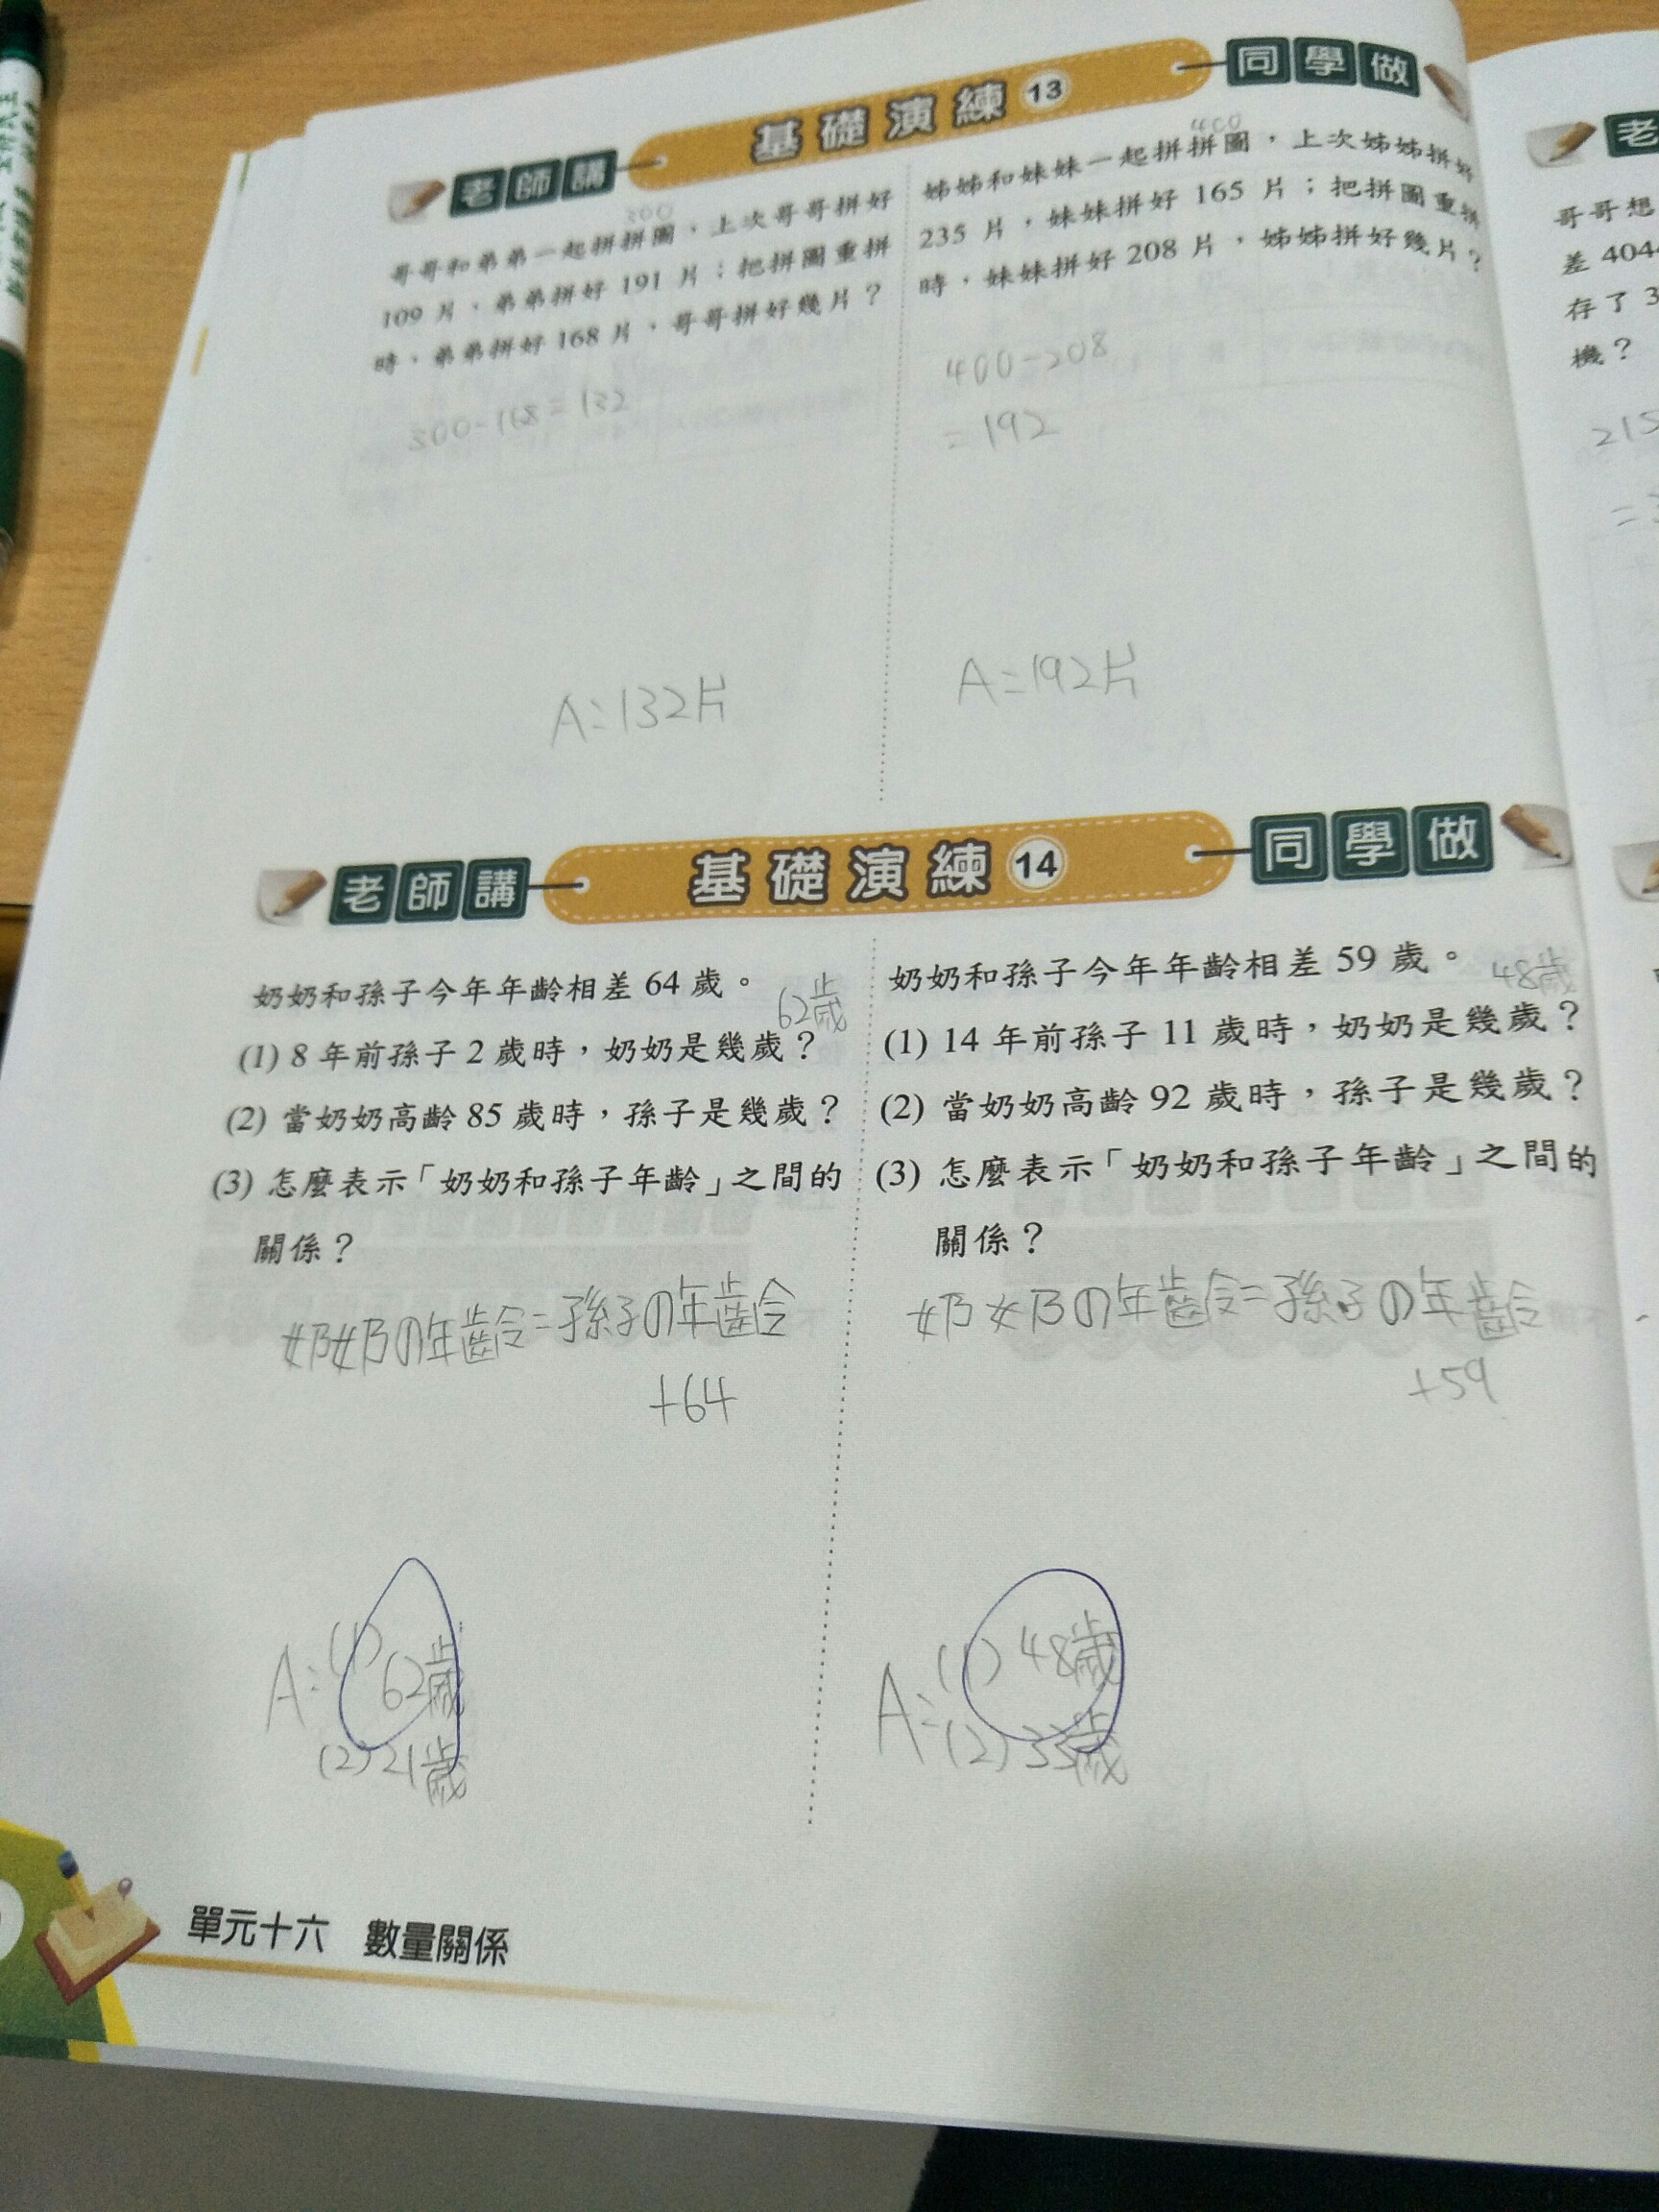 老師講 基礎演練 13 同學做
300
哥哥和弟弟一起拼拼圖,上次哥哥拼好
109 片,弟弟拼好 191 片;把拼圖重拼
時,弟弟拼好 168 片,哥哥拼好幾片?
300-168=132
A:132片
400
姊姊和妹妹一起拼拼圖,上次姊姊拼好
235 片,妹妹拼好 165 片;把拼圖重拼
時,妹妹拼好 208 片,姊姊拼好幾片?
400-208
=192
A:192片
老師講 基礎演練 14 同學做
奶奶和孫子今年年齡相差 64 歲。
62歲
(1) 8 年前孫子 2 歲時,奶奶是幾歲?
(2) 當奶奶高齡 85 歲時,孫子是幾歲?
(3) 怎麼表示「奶奶和孫子年齡」之間的
關係?
奶奶の年齡=孫子の年齡
+64
A:(1)62歲
(2)21歲
奶奶和孫子今年年齡相差 59 歲。
48歲
(1) 14 年前孫子 11 歲時,奶奶是幾歲?
(2) 當奶奶高齡 92 歲時,孫子是幾歲?
(3) 怎麼表示「奶奶和孫子年齡」之間的
關係?
奶奶の年齡=孫子の年齡
+59
A:(1)48歲
(2)33歲
單元十六 數量關係
老
哥哥想
差 404
存了 3
機?
215